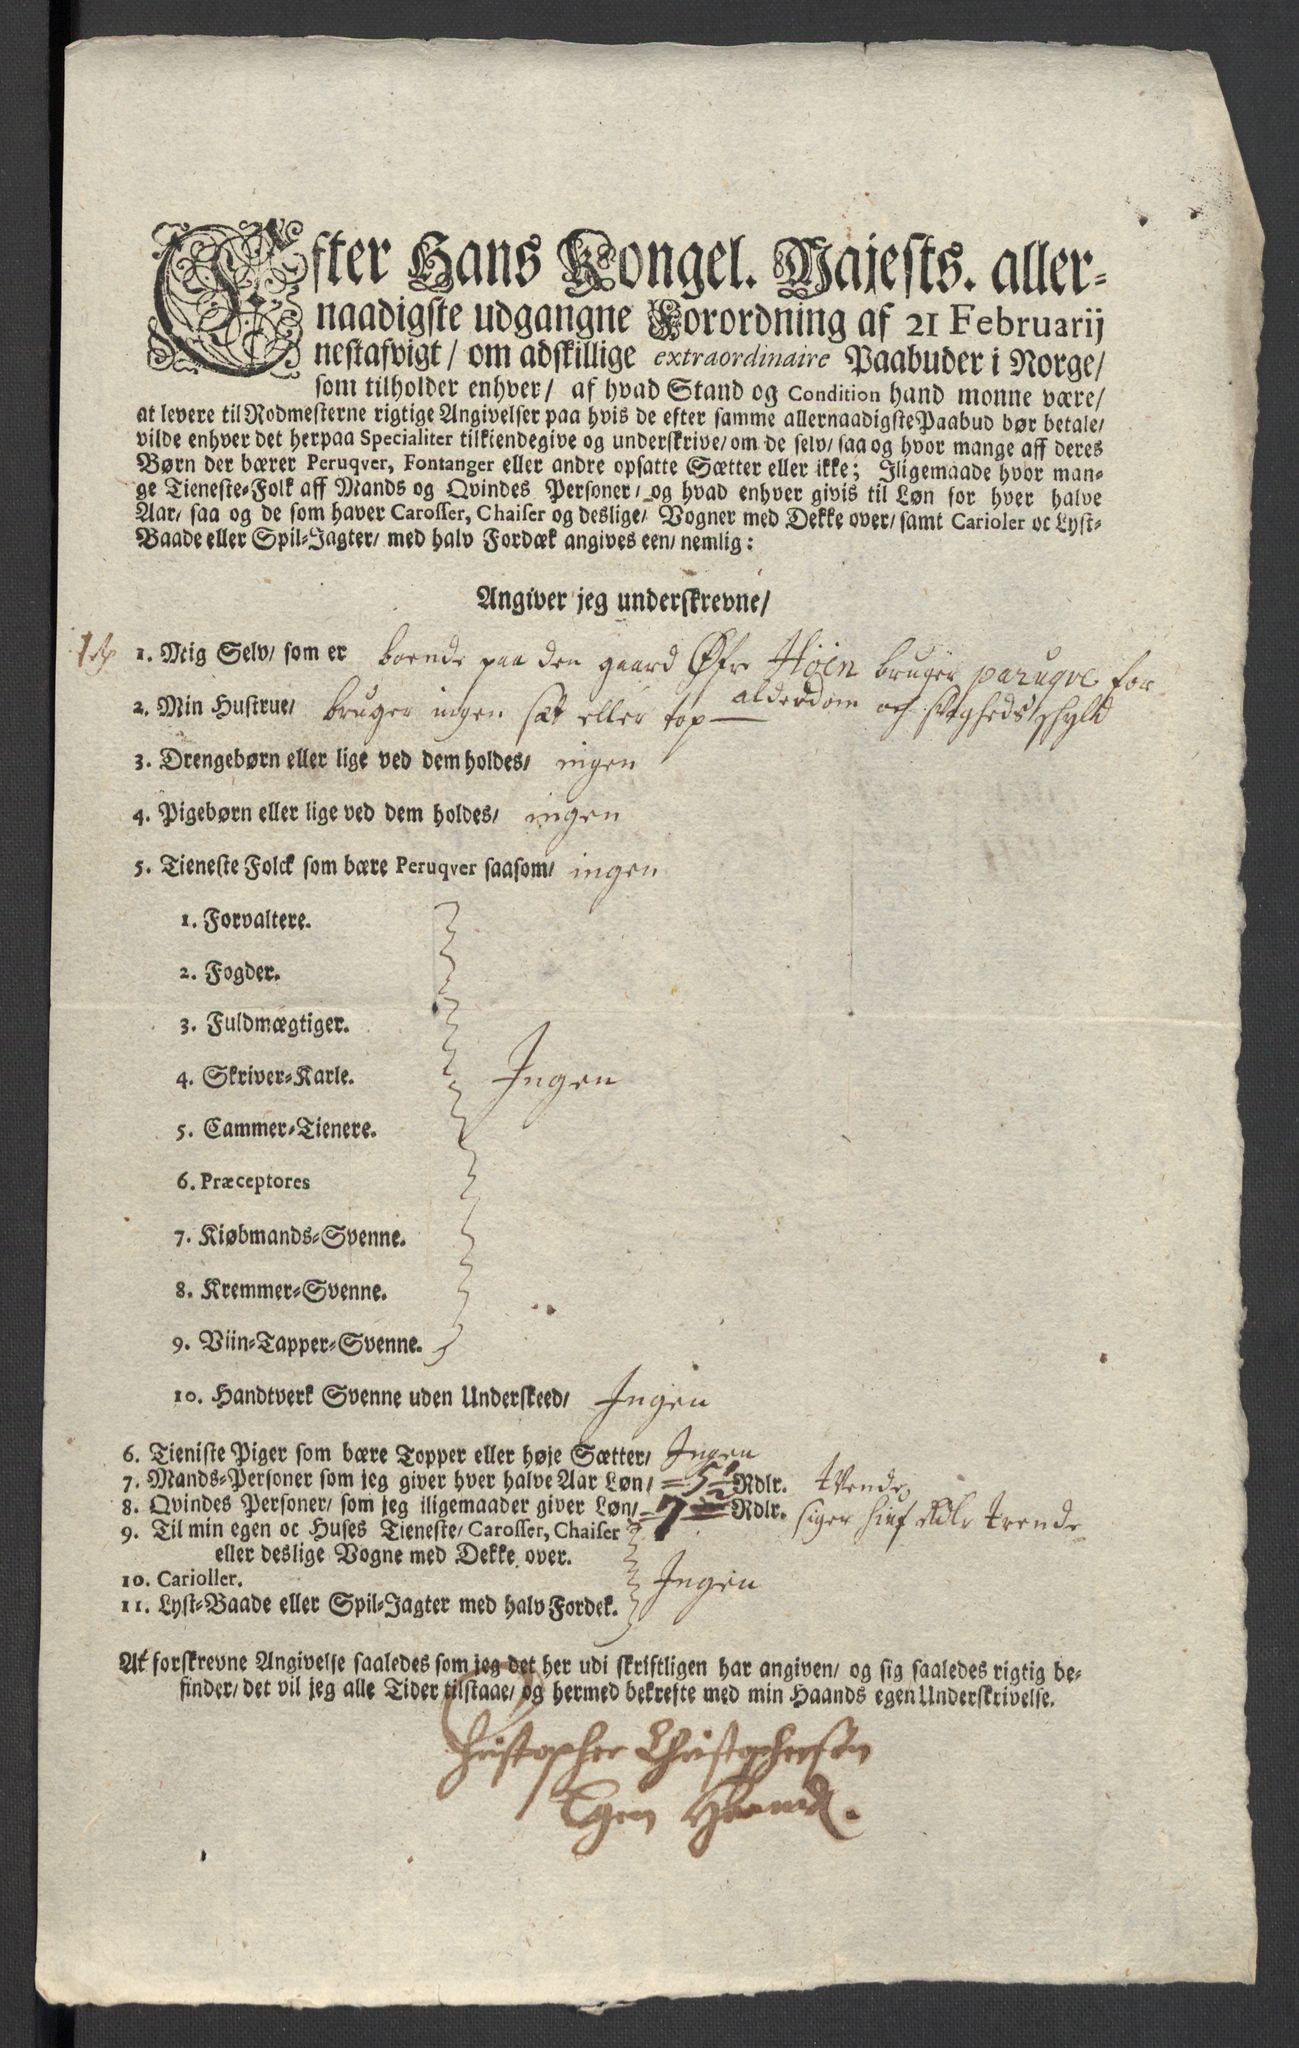 Efter Hans Kongel. Majests. aller-
naadigste udgangne Forordning af 21 Februarij
nestafvigt/ om adskillige extraordinaire Paabuder i Norge/
som tilholder enhver/ af hvad Stand og Condition hand monne være/
at levere til Rodmesterne rigtige Angivelser paa hvis de efter samme allernaadigste Paabud bør betale/
vilde enhver det herpaa Specialiter tilkiendegive og underskrive/ om de selv/ saa og hvor mange aff deres
Børn der bærer Peruqver, Fontanger eller andre opsatte Sætter eller ikke; Jligemaade hvor man-
ge Tieneste-Folk aff Mands og Qvindes Personer/ og hvad enhver givis til Løn for hver halve
Aar/ saa og de som haver Carosser, Chaiser og deslige/ Vogner med Dekke over/ samt Carioler oc Lyst-
Baade eller Spil-Jagter/ med halv Fordæk angives een/ nemlig:
Angiver jeg underskrevne/
1. Mig Selv/ som er boende paa den gaard Øfre Höen bruger paruqve for
alderdom og svagheds skyld
2. Min Hustrue/ bruger ingen sæt eller top
3. Drengebørn eller lige ved dem holdes/ ingen
4. Pigebørn eller lige ved dem holdes/ ingen
5. Tieneste Folck som bære Peruqver saasom/ ingen
1. Forvaltere.
2. Fogder.
3. Fuldmægtiger.
4. Skriver-Karle. Ingen
5. Cammer-Tienere.
6. Præceptores
7. Kiøbmands-Svenne.
8. Kremmer-Svenne.
9. Viin-Tapper-Svenne.
10. Handtverk Svenne uden Underskeed/ Ingen
6. Tieniste Piger som bære Topper eller høje Sætter/ Ingen
7. Mands-Personer som jeg giver hver halve Aar Løn/ 5 1/2 Rdlr. tvende
8. Qvindes Personer/ som jeg iligemaader giver Løn/ 7 Rdlr. siger siuf Rdlr trende
9. Til min egen oc Huses Tieneste/ Carosser, Chaiser
eller deslige Vogne med Dekke over.
10. Carioller. Ingen
11. Lyst-Baade eller Spil-Jagter med halv Fordek.
At forskrevne Angivelse saaledes som jeg det her udi skriftligen har angiven/ og sig saaledes rigtig be-
finder/ det vil jeg alle Tider tilstaae/ og hermed bekrefte med min Haands egen Underskrivelse.
Christopher Christophersøn
Egen Haand.